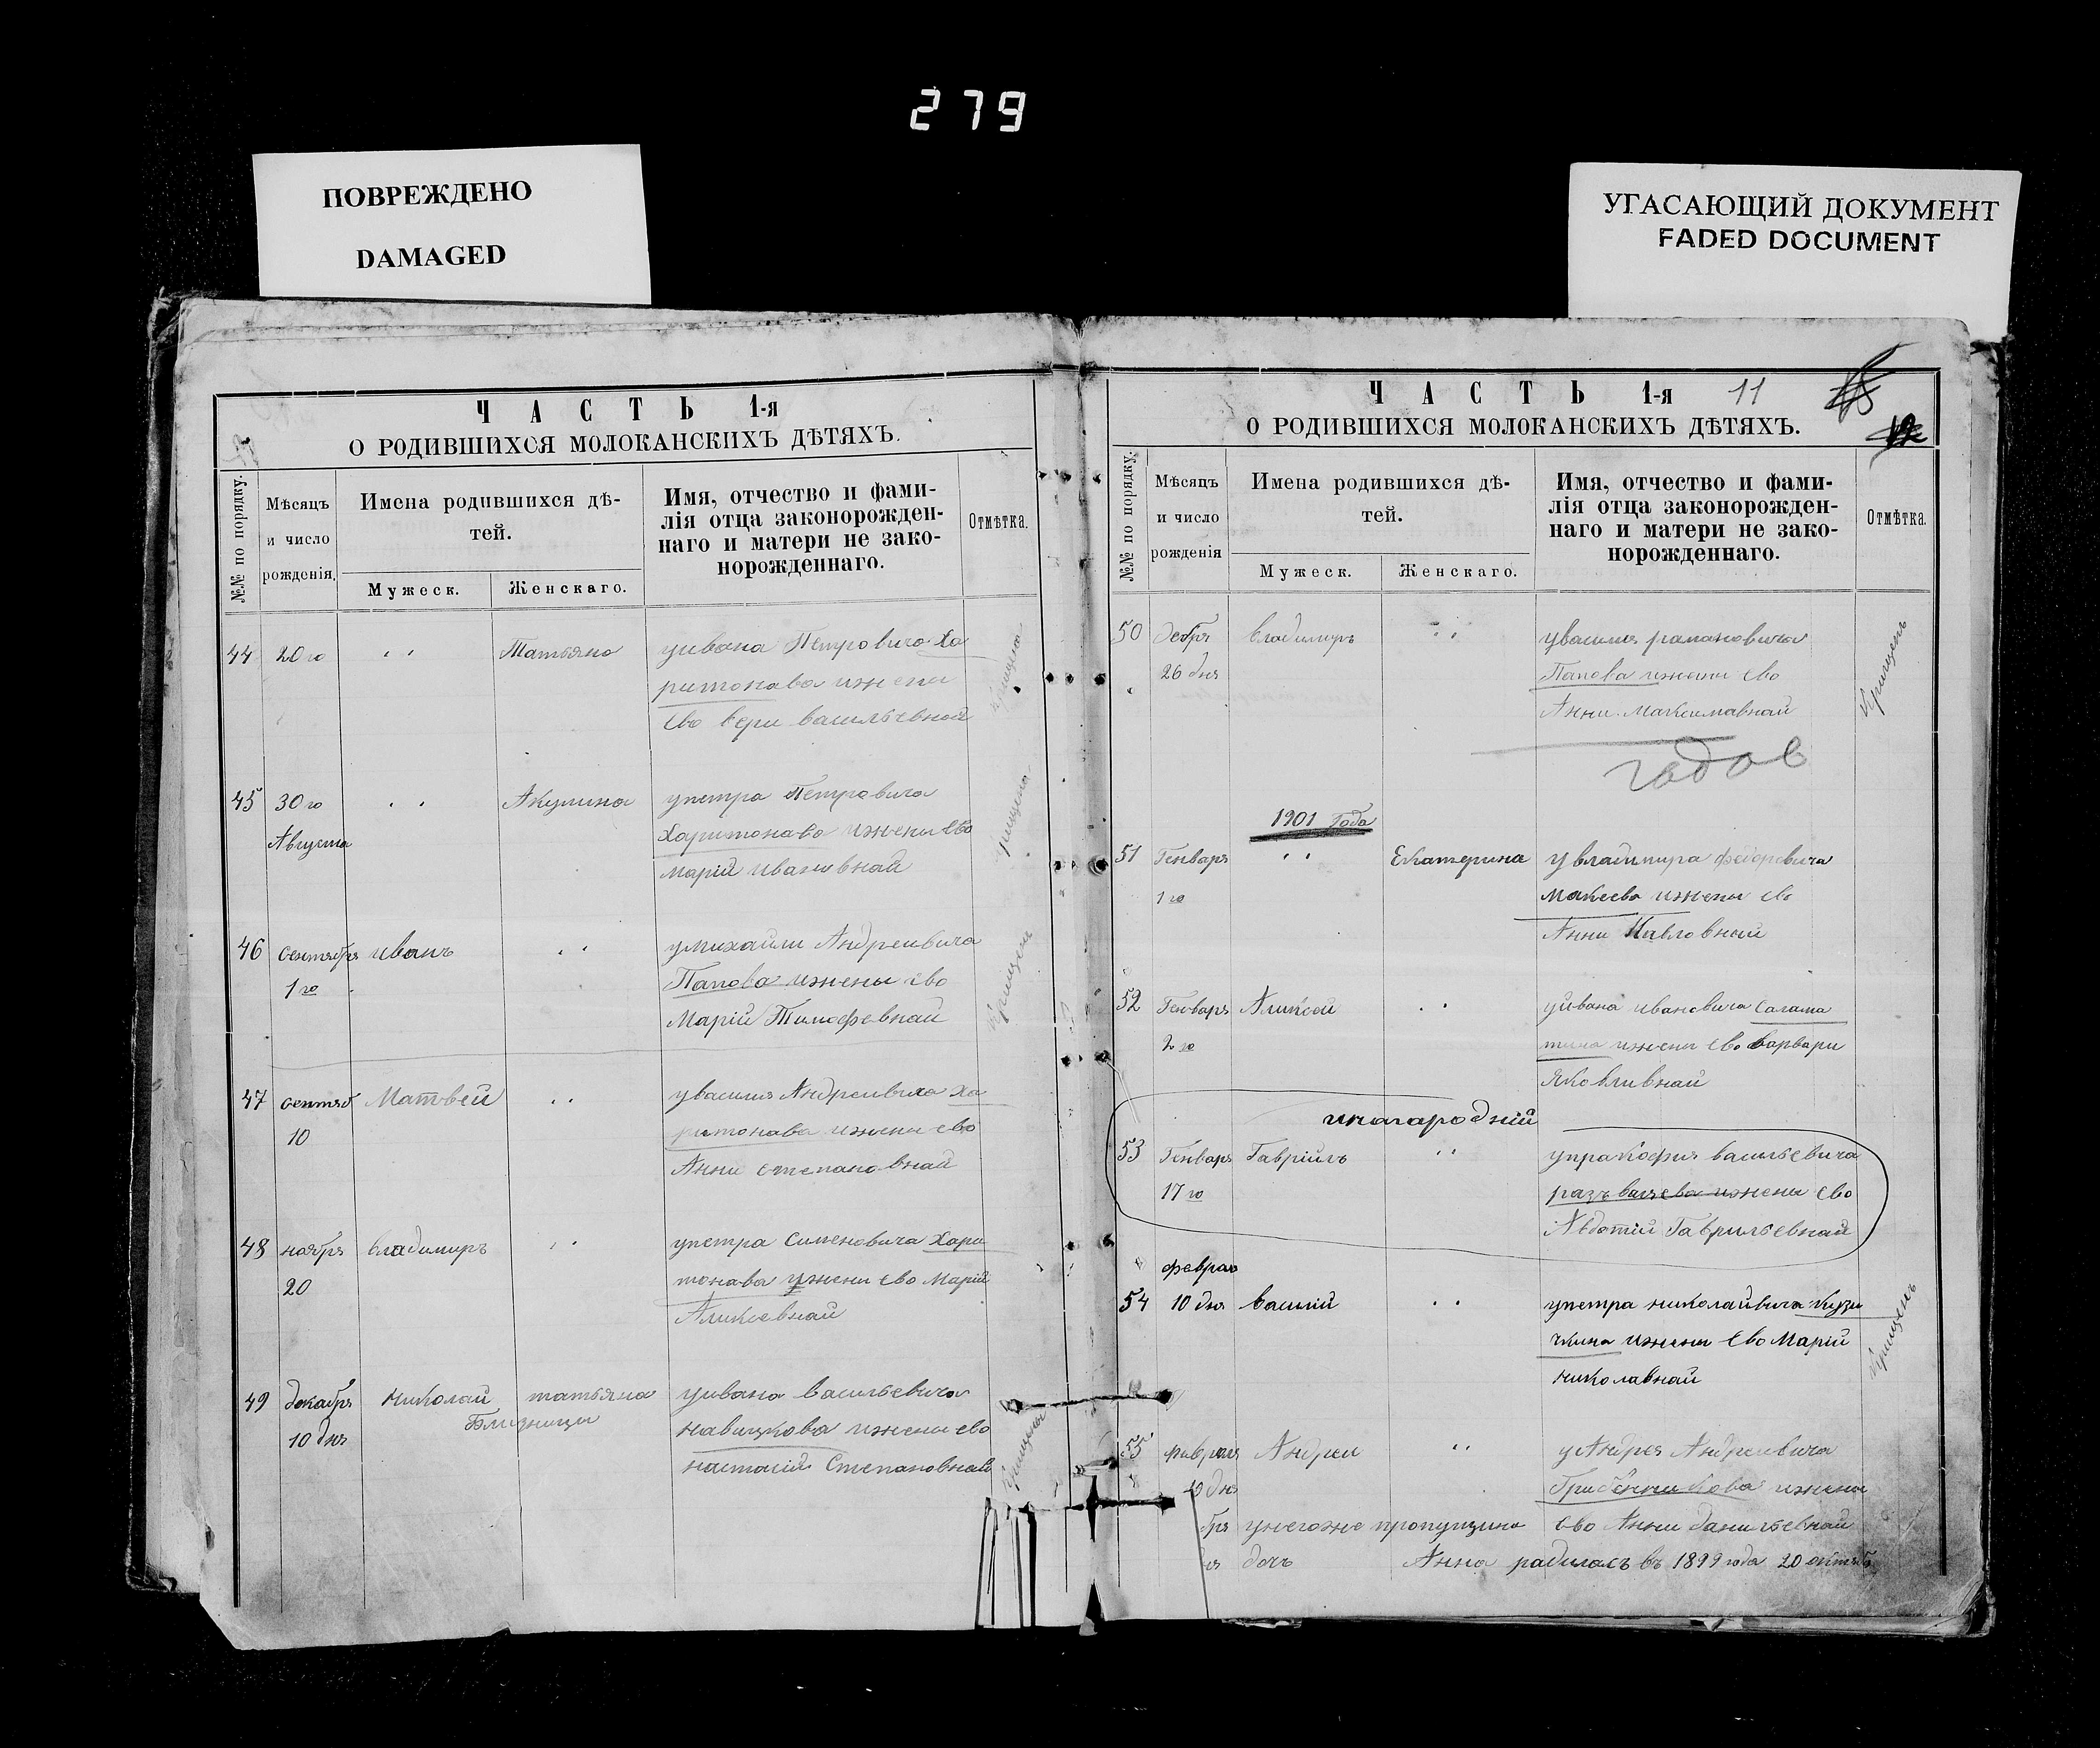 279
ПОВРЕЖДЕНО
DAMAGED
УГАСАЮЩИЙ ДОКУМЕНТ
FADED DOCUMENT
ЧАСТЬ 1-я
О РОДИВШИХСЯ МОЛОКАНСКИХЪ ДѢТЯХЪ.
№№ по порядку.
Мѣсяцъ
и число
рожденія.
Имена родившихся дѣ-
тей.
Мужеск.
Женскаго.
Имя, отчество и фами-
лія отца законорожден-
наго и матери не зако-
норожденнаго.
Отмѣтка.
44 20го " Татьяна уивана Петровича Ха
ритонава ижени
Ево вери васильевнай
45 30го " Акулина упетра Петравича
Августа Харитонава ижени Ево
Марій ивановнай
46 сентября иванъ " умихайли Андреивича
1го Папова ижены ево
Марій Тимофевнай
Крищен
47 сентяб Матвей " увасиля Андреивича Ха
10 ритонава ижени ево
Анни степановнай
48 ноября владимиръ " упетра Сименовича Хари
20 тонава ижени ево Марій
Аликсевнай
49 декабря николай татьяна уивана васильевича
Близници
10 дня навичкова ижени ево
настасій Степановнай
Крищены
ЧАСТЬ 1-я 11
О РОДИВШИХСЯ МОЛОКАНСКИХЪ ДѢТЯХЪ.
№№ по порядку.
Мѣсяцъ
и число
рожденія
Имена родившихся дѣ-
тей.
Мужеск.
Женскаго.
Имя, отчество и фами-
лія отца законорожден-
наго и матери не зако-
норожденнаго.
Отмѣтка.
50 Декбря владимиръ " увасиля рамановича
26 дня Папова ижени Ево
Анни Максимавнай
Крищенъ
годов
1901 года
51 Генваря " Екатерина увладимира федоровича
1го Макеева ижени ево
Анни Павловнай
52 Генваря Аликсей " уивана ивановича Салама
2го тина ижени Ево варвари
Яковливнай
инагародній
53 Генваря Гаврійлъ " упракофия васильевича
17го разъваляева ижены Ево
Авдотій Гаврильевнай
феврал
54 10 дня василій " упетра николаивича Кузи
чкина ижени Ево Марій
николавнай
Крищенъ
55 фивраля Андреи " уАндрея Андреивича
10 дня Грибенникова ижени
бря унегоже пропущина Ево Анни данильевнай
ня дочъ Анна радилась въ 1899 года 20 октяб